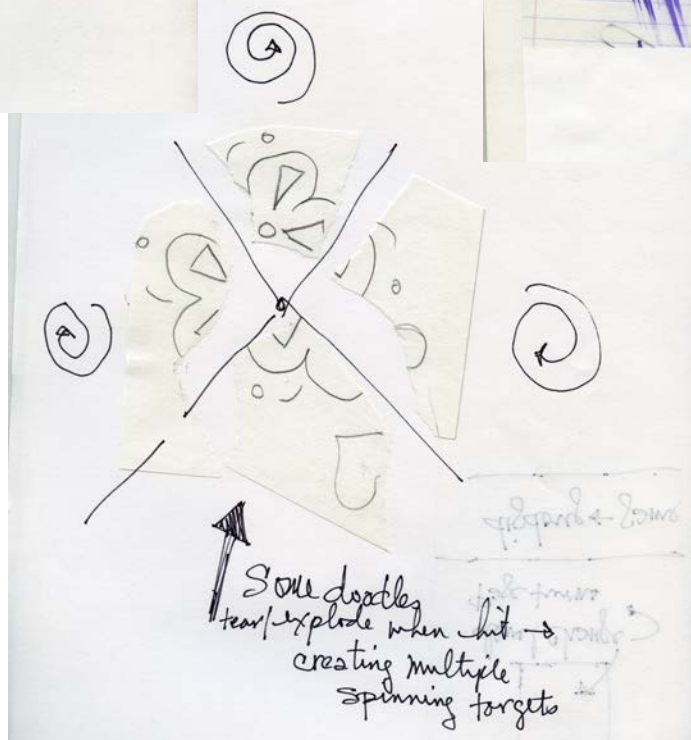 Some doodles
tear/explode when hit →
creating multiple
spinning targets